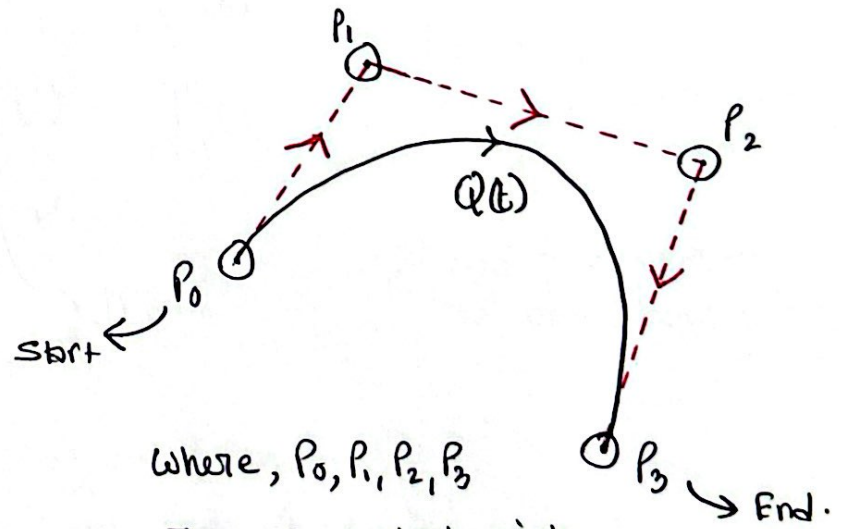 P1
P2
Q(t)
P0
Start
where, P0, P1, P2, P3
P3
End.